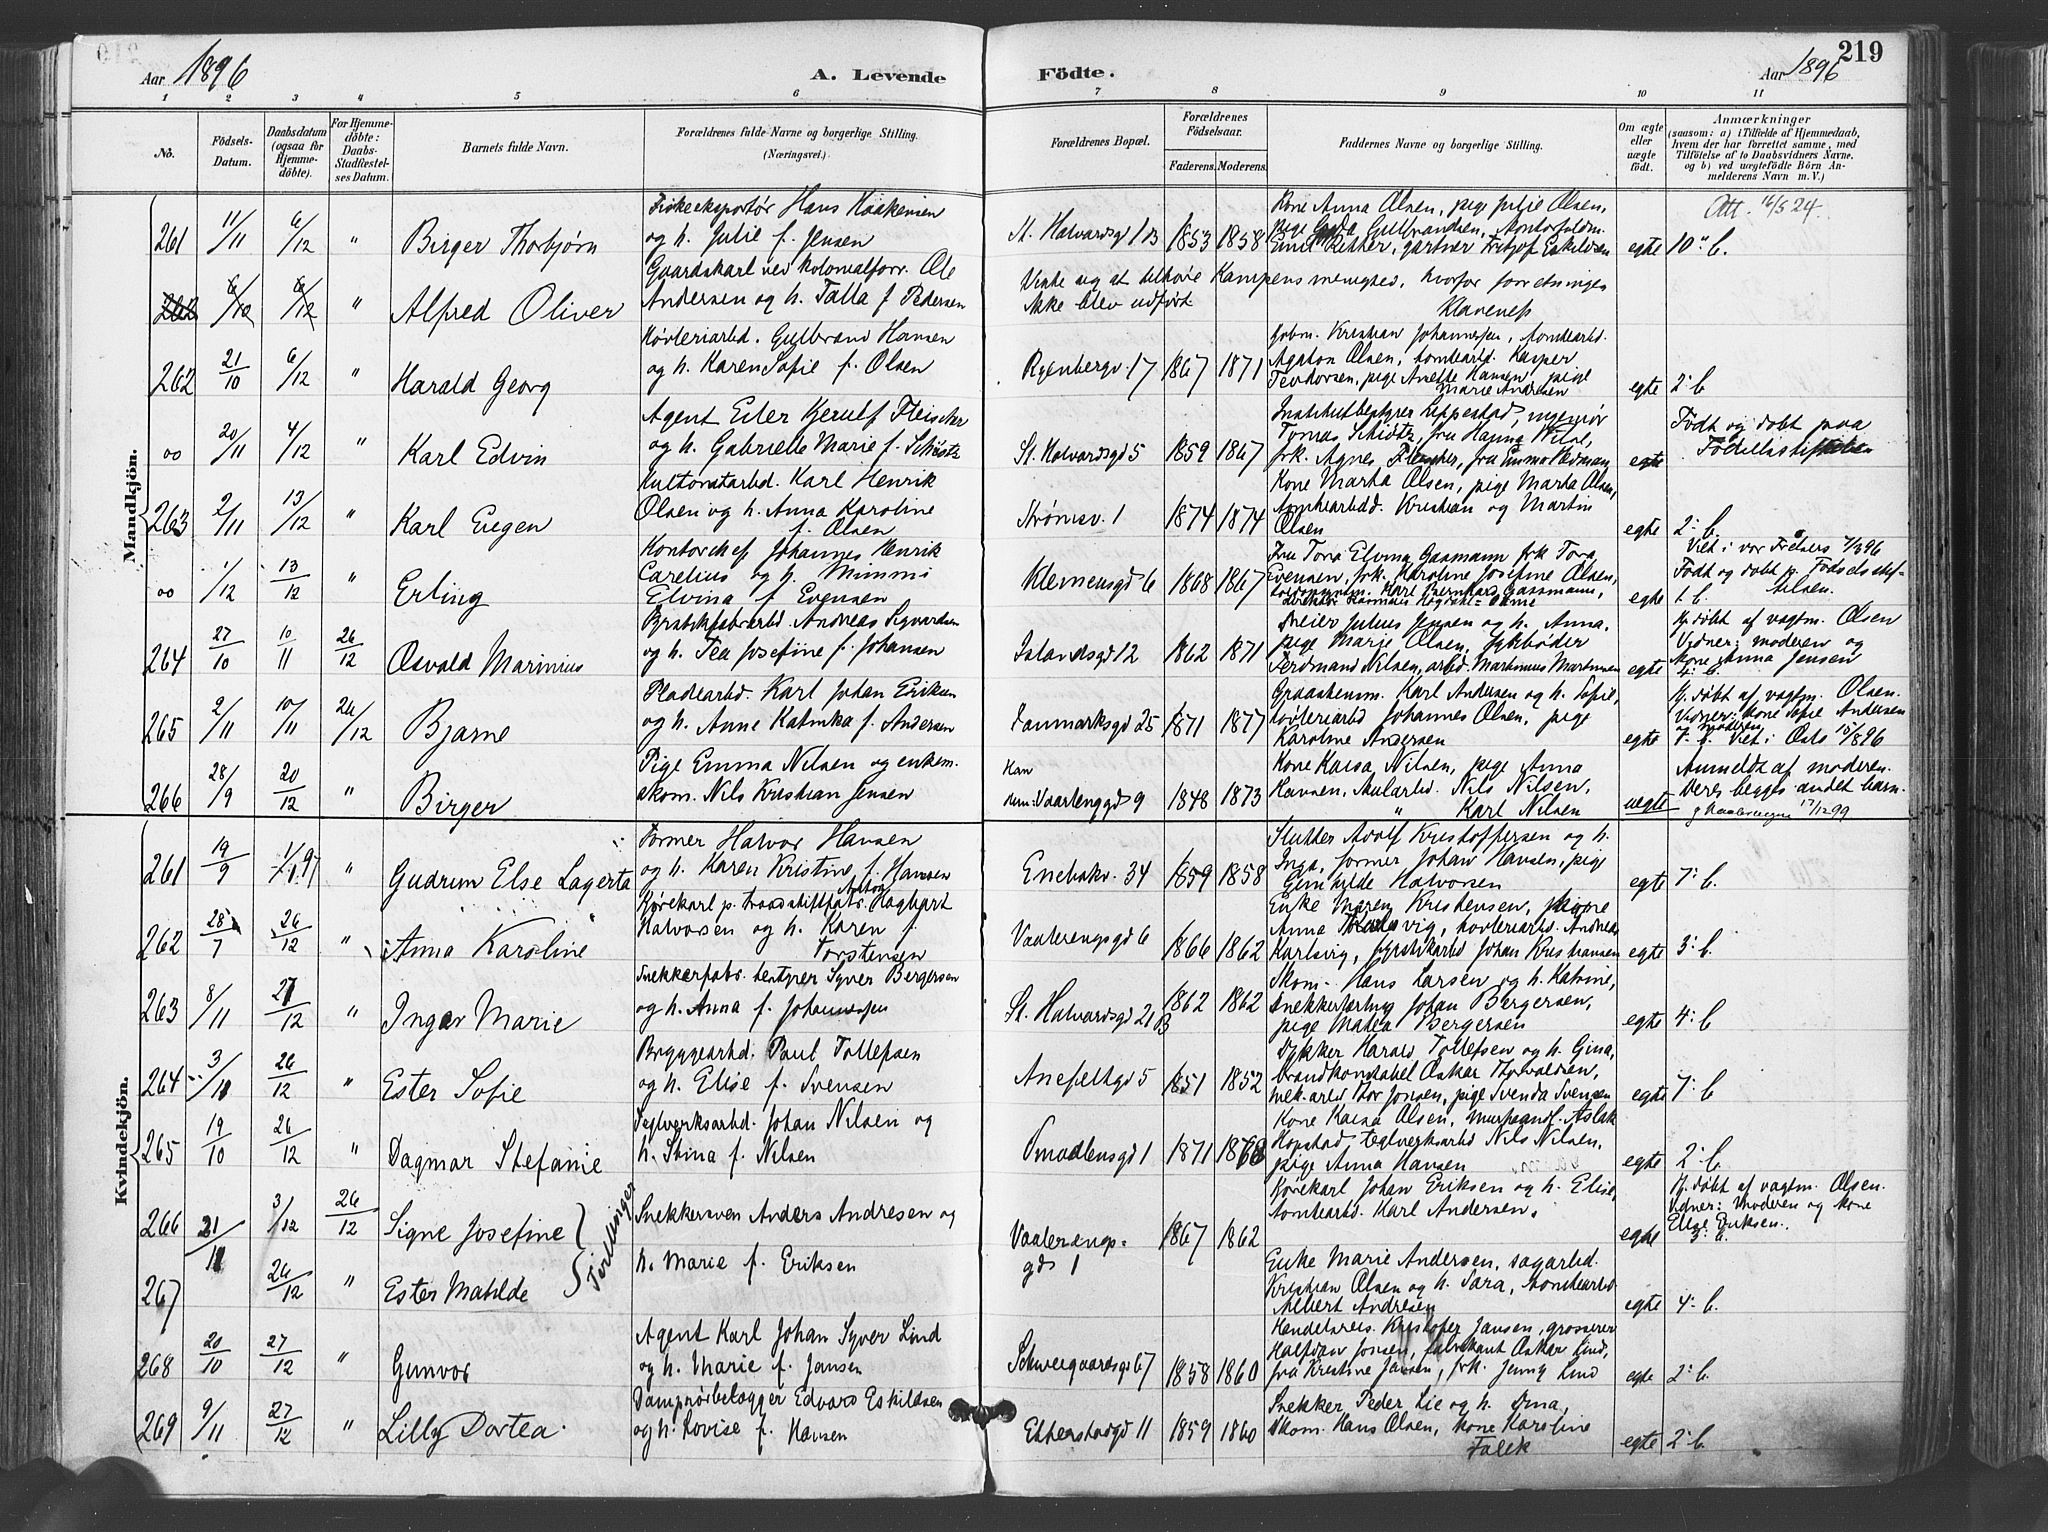 219
Aar 1896
A. Levende Födte.
Aar 1896
1 2 3 4 5 6 7 8 9 10 11
No.
Födsels-Datum.
Daabsdatum (ogsaa for Hjemme-döbte).
For Hjemme-döbte: Daabs-Stadfæstel-ses Datum.
Barnets fulde Navn.
Forældrenes fulde Navne og borgerlige Stilling.
(Næringsvei.)
Forældrenes Bopæl.
Forældrenes Födselsaar.
Faderens. Moderens.
Faddernes Navne og borgerlige Stilling.
Om ægte eller uægte födt.
Anmærkninger
(saasom: a) i Tilfælde af Hjemmedaab, hvem der har forrettet samme, med Tilföielse af to Daabsvidners Navne, og b) ved uægtefödte Börn An-melderens Navn m. V.)
Mandkjön.
261 11/11 6/12 " Birger Thorbjørn
Fiskeeksportør Hans Haakensen
og h. Julie f. Jensen
St. Halvardsgd 1 B 1853 1858
Kone Anna Olsen, pige Julie Olsen,
pige Gulbrandsen,
gartner Eskildsen
egte 10" b.
Att. 16/5 24.
262 6/10 6/12 " Alfred Oliver
Gaardskarl ved kolonialforr. Ole
Andersen og h. Talla f. Pedersen
Viste sig at tilhøre Kampens menighed, hvorfor forretningen
ikke blev udført
Klaveness
262 21/10 6/12 " Harald Georg
Høvleriarbd. Gulbrand Hansen
og h. Karen Sofie f. Olsen
Ryenbergv. 17 1867 1871
Kristian Johannesen, tomtearbd.
Agaton Olsen, tomtearbd. Kasper
Teodorsen, pige Anette Hansen, pige
Marie Andresen
egte 2: b
oo 20/11 4/12 " Karl Edvin
Agent Eiler Kjerulf Fleischer
og h. Gabrielle Marie f. Schiøtz
St. Halvardsgd 5 1859 1867
Institutbestyrer Lippestad, ingeniør
Tomas Schiøtz, fru Hanna
frk. Agnes Fleischer, fru Emma
egte
Født og døbt paa
Fødselsstiftelsen
263 2/11 13/12 " Karl Eugen
Karl Henrik
Olsen og h. Anna Karoline
f. Olsen
Strømsv. 1 1874 1874
Kone Marta Olsen, pige Marta Olsen,
tomtearbd. Kristian og Martin
Olsen
egte 2: b.
oo 1/12 13/12 " Erling
Kontorchef Johannes Henrik
Carelius og h. Mimmi
Elvina f. Evensen
Klemensgd 6 1868 1867
Fru Tora Elvina Gassmann frk Tora
Evensen, frk. Karoline Josefine Olsen,
Karl Bernhard Gassmann,
egte 1 b.
Viet i vor Frelsers 7/3 96
Født og døbt p. Fødselsstif-
telsen.
264 27/10 10/11 26/12 Osvald Marinius
Andreas Sigvardsen
og h. Tea Josefine f. Johansen
Islandsgd 12 1862 1871
Dreier Julius Jensen og h. Anna,
pige Marie Olsen, fyrbøder
Ferdinand Nilsen, arbd. Martinius Martinsen
egte 4: b.
Hj. døbt af vagtm. Olsen
Vidner: moderen og
kone Anna Jensen
265 2/11 10/11 26/12 Bjarne
Pladearbd. Karl Johan Eriksen
og h. Anne Katinka f. Andersen
Danmarksgd 25 1871 1877
Graastensm. Karl Andersen og h. Sofie,
høvleriarbd Johannes Olsen, pige
Karoline Andersen
egte 1. b. Viet i Oslo 15/8 96
Hj. døbt af vagtm. Olsen.
Vidner: kone Sofie Andersen
og moderen
266 28/9 20/12 " Birger
Pige Emma Nilsen og enkem.
skom. Nils Kristian Jensen
Han
Hun: Vaalerengd 9 1848 1873
Kone Kaisa Nilsen, pige Anna
Hansen, Nils Nilsen,
" Karl Nilsen
uegte
Anmeldt af moderen.
Deres begges andet barn.
17/12 99
Kvindekjön.
261 19/9 1/1 97 " Gudrun Else Lagerta
Former Halvor Hansen
og h. Karen Kristine f. Hansen
Enebakv. 34 1859 1858
Slutter Adolf Kristoffersen og h.
Inga, former Johan Hansen, pige
Gunhilde Halvorsen
egte 7: b.
262 28/7 26/12 " Anna Karoline
Kjørekarl p. traadstiftfabr. Anton Hagbart
Halvorsen og h. Karen f.
Torstensen
Vaalerengsgd 6 1866 1862
Enke Maren Kristensen, pige
Anna høvleriarbd. Andreas
Karlsvig, Johan Kristiansen
egte 3: b.
263 8/11 27/12 " Inger Marie
Snekkerfabr. bestyrer Syver Bergersen
og h. Anna f. Johannesen
St. Halvardsgd 21 B 1862 1862
Skom. Hans Larsen og h. Katrine,
snekkerlærling Johan Bergersen,
pige Matea Bergersen
egte 4: b
264 3/11 26/12 " Ester Sofie
Bryggearbd. Paul Tollefsen
og h. Elise f. Svensen
Anefeltsgd 5 1851 1852
Dykker Harald Tollefsen og h. Gina,
brandkonstabel Oskar Thorvaldsen,
mek. arbd Thor Jonsen, pige Svenda Svensen
egte 7: b
265 19/10 26/12 " Dagmar Stefanie
Teglverksarbd. Johan Nilsen og
h. Stina f. Nilsen
Smaalensgd 1 1871 1868
Kone Kaisa Olsen, murhaandl. Aslak
Hopstad teglverksarbd Nils Nilsen,
pige Anna Hansen
egte 2: b.
266 21/11 3/12 26/12 Signe Josefine } Tvillinger
Snekkersven Anders Andresen og
h. Marie f. Eriksen
Vaalerengs-
gd 1 1867 1862
Kjørekarl Johan Eriksen og h. Elise,
tomtearbd. Karl Andersen.
egte 3: b.
Hj. døbt af vagtm. Olsen.
Vidner: Moderen og kone
Elise Eriksen.
267 26/12 " Ester Matilde
Enke Marie Andersen, sagarbd.
Kristian Olsen og h. Sara, tomtearbd
Albert Andresen
egte 4: b.
268 20/10 27/12 " Gunvor
Agent Karl Johan Syver Lind
og h. Marie f. Jansen
Schweigaardsgd 67 1858 1860
Handelsreis. Kristofer Jansen, grosserer
Halfdan Jonsen, fabrikant Oskar Lind,
fru Kristine Jansen, frk. Jenny Lind
egte 2: b.
269 9/11 27/12 " Lilly Dortea.
Damprørbelægger Edvard Eskildsen
og h. Lovise f. Hansen
Etterstadgd 11 1859 1860
Snekker Peder Lie og h. Oma,
skom. Hans Olsen, kone Karoline
Falck
egte 2: b.